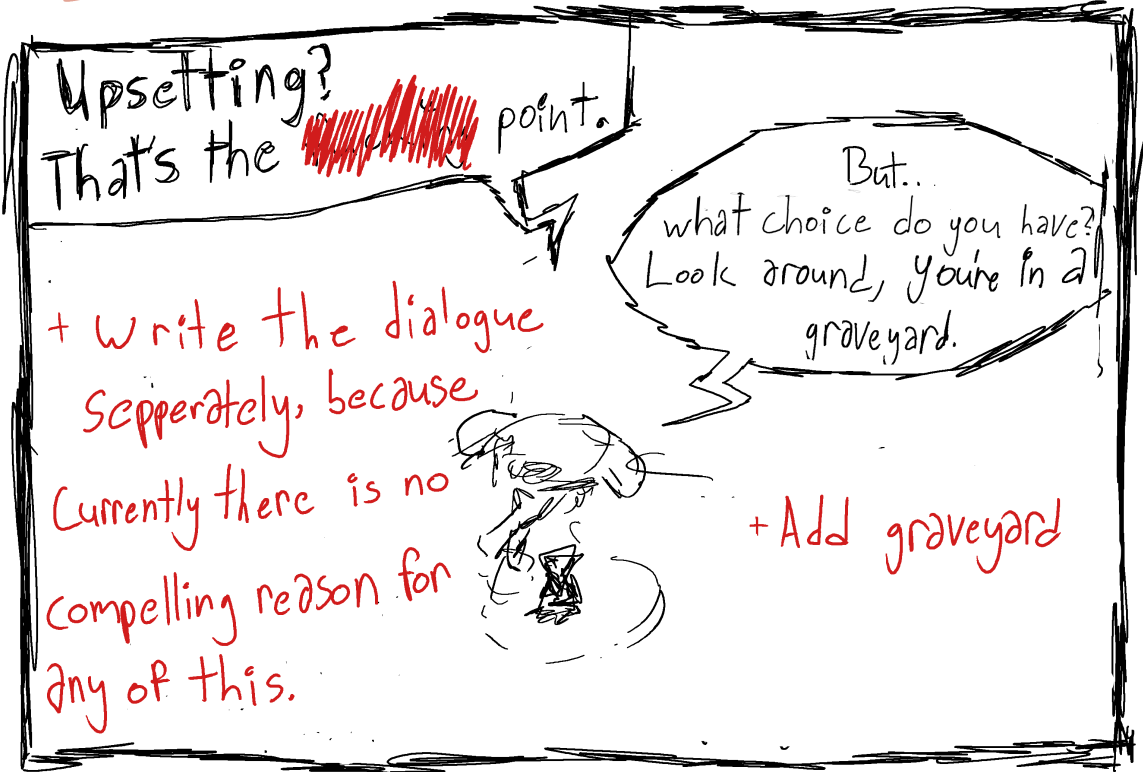 Upsetting?
That's the point.
But..
what choice do you have?
Look around, you're in a
graveyard.
+ Write the dialogue
Sepperately, because
Currently there is no
compelling reason for
any of this.
+ Add graveyard